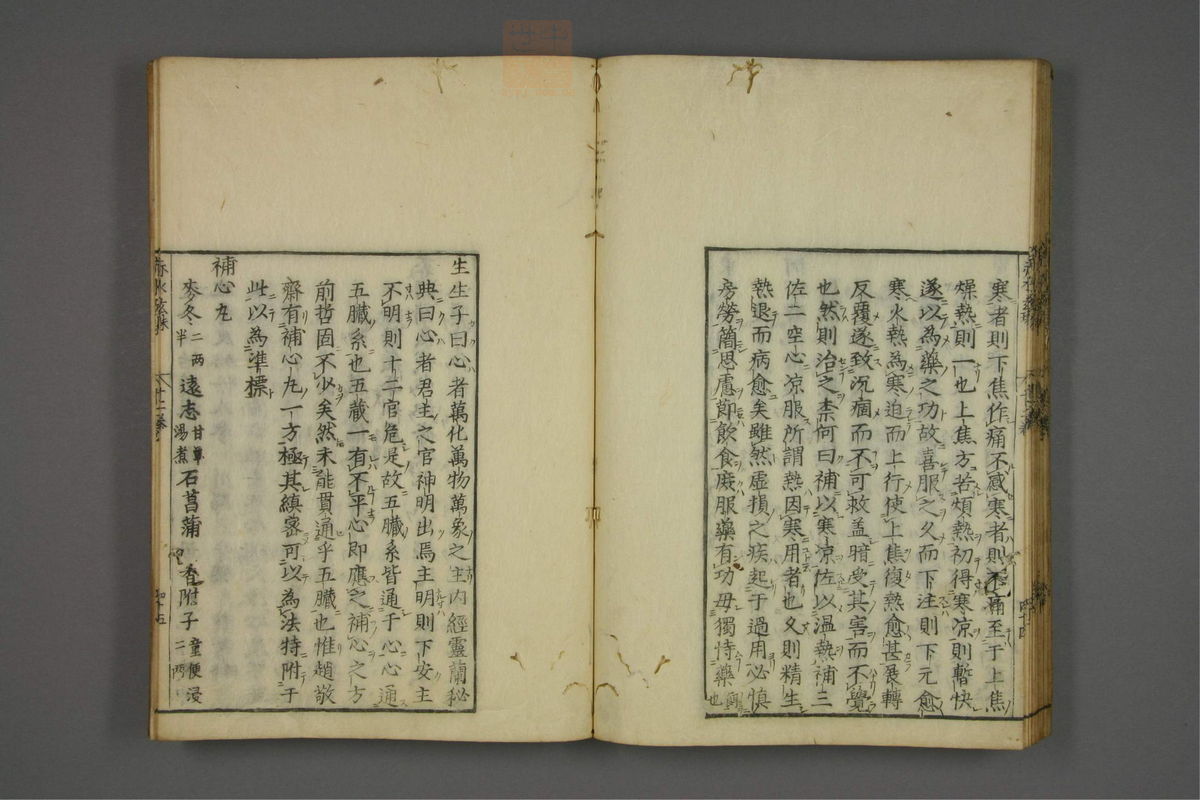 寒者則下焦作痛不感寒者則不痛至于上焦
燥熱則一也上焦方苦煩熱初得寒凉則暫快
遂以為藥之功故喜服之久而下注則下元愈
寒火熱為寒迫而上行使上焦復熱愈甚展轉
反覆遂致沉痼而不可救盖暗受其害而不覺
也然則治之柰何曰補以寒凉佐以温熱補三
佐二空心凉服所謂熱因寒用者也又則精生
熱退而病愈矣雖然虛損之疾起于過用必慎
房勞簡思慮節飲食庶服藥有功毋獨恃藥也
生生子曰心者萬化萬物萬象之主内經靈蘭秘
典曰心者君主之官神明出焉主明則下安主
不明則十二官危是故五臟系皆通于心心通
五臟系也五藏一有不平心即應之補心之方
前哲固不少矣然未能貫通乎五臟也惟趙敬
齋有補心丸一方極其縝密可以為法特附于
此以為準標
補心丸
麥冬二兩半 遠志甘草湯煮 石菖蒲 香附子童便浸二兩
赤水玄珠
四十五